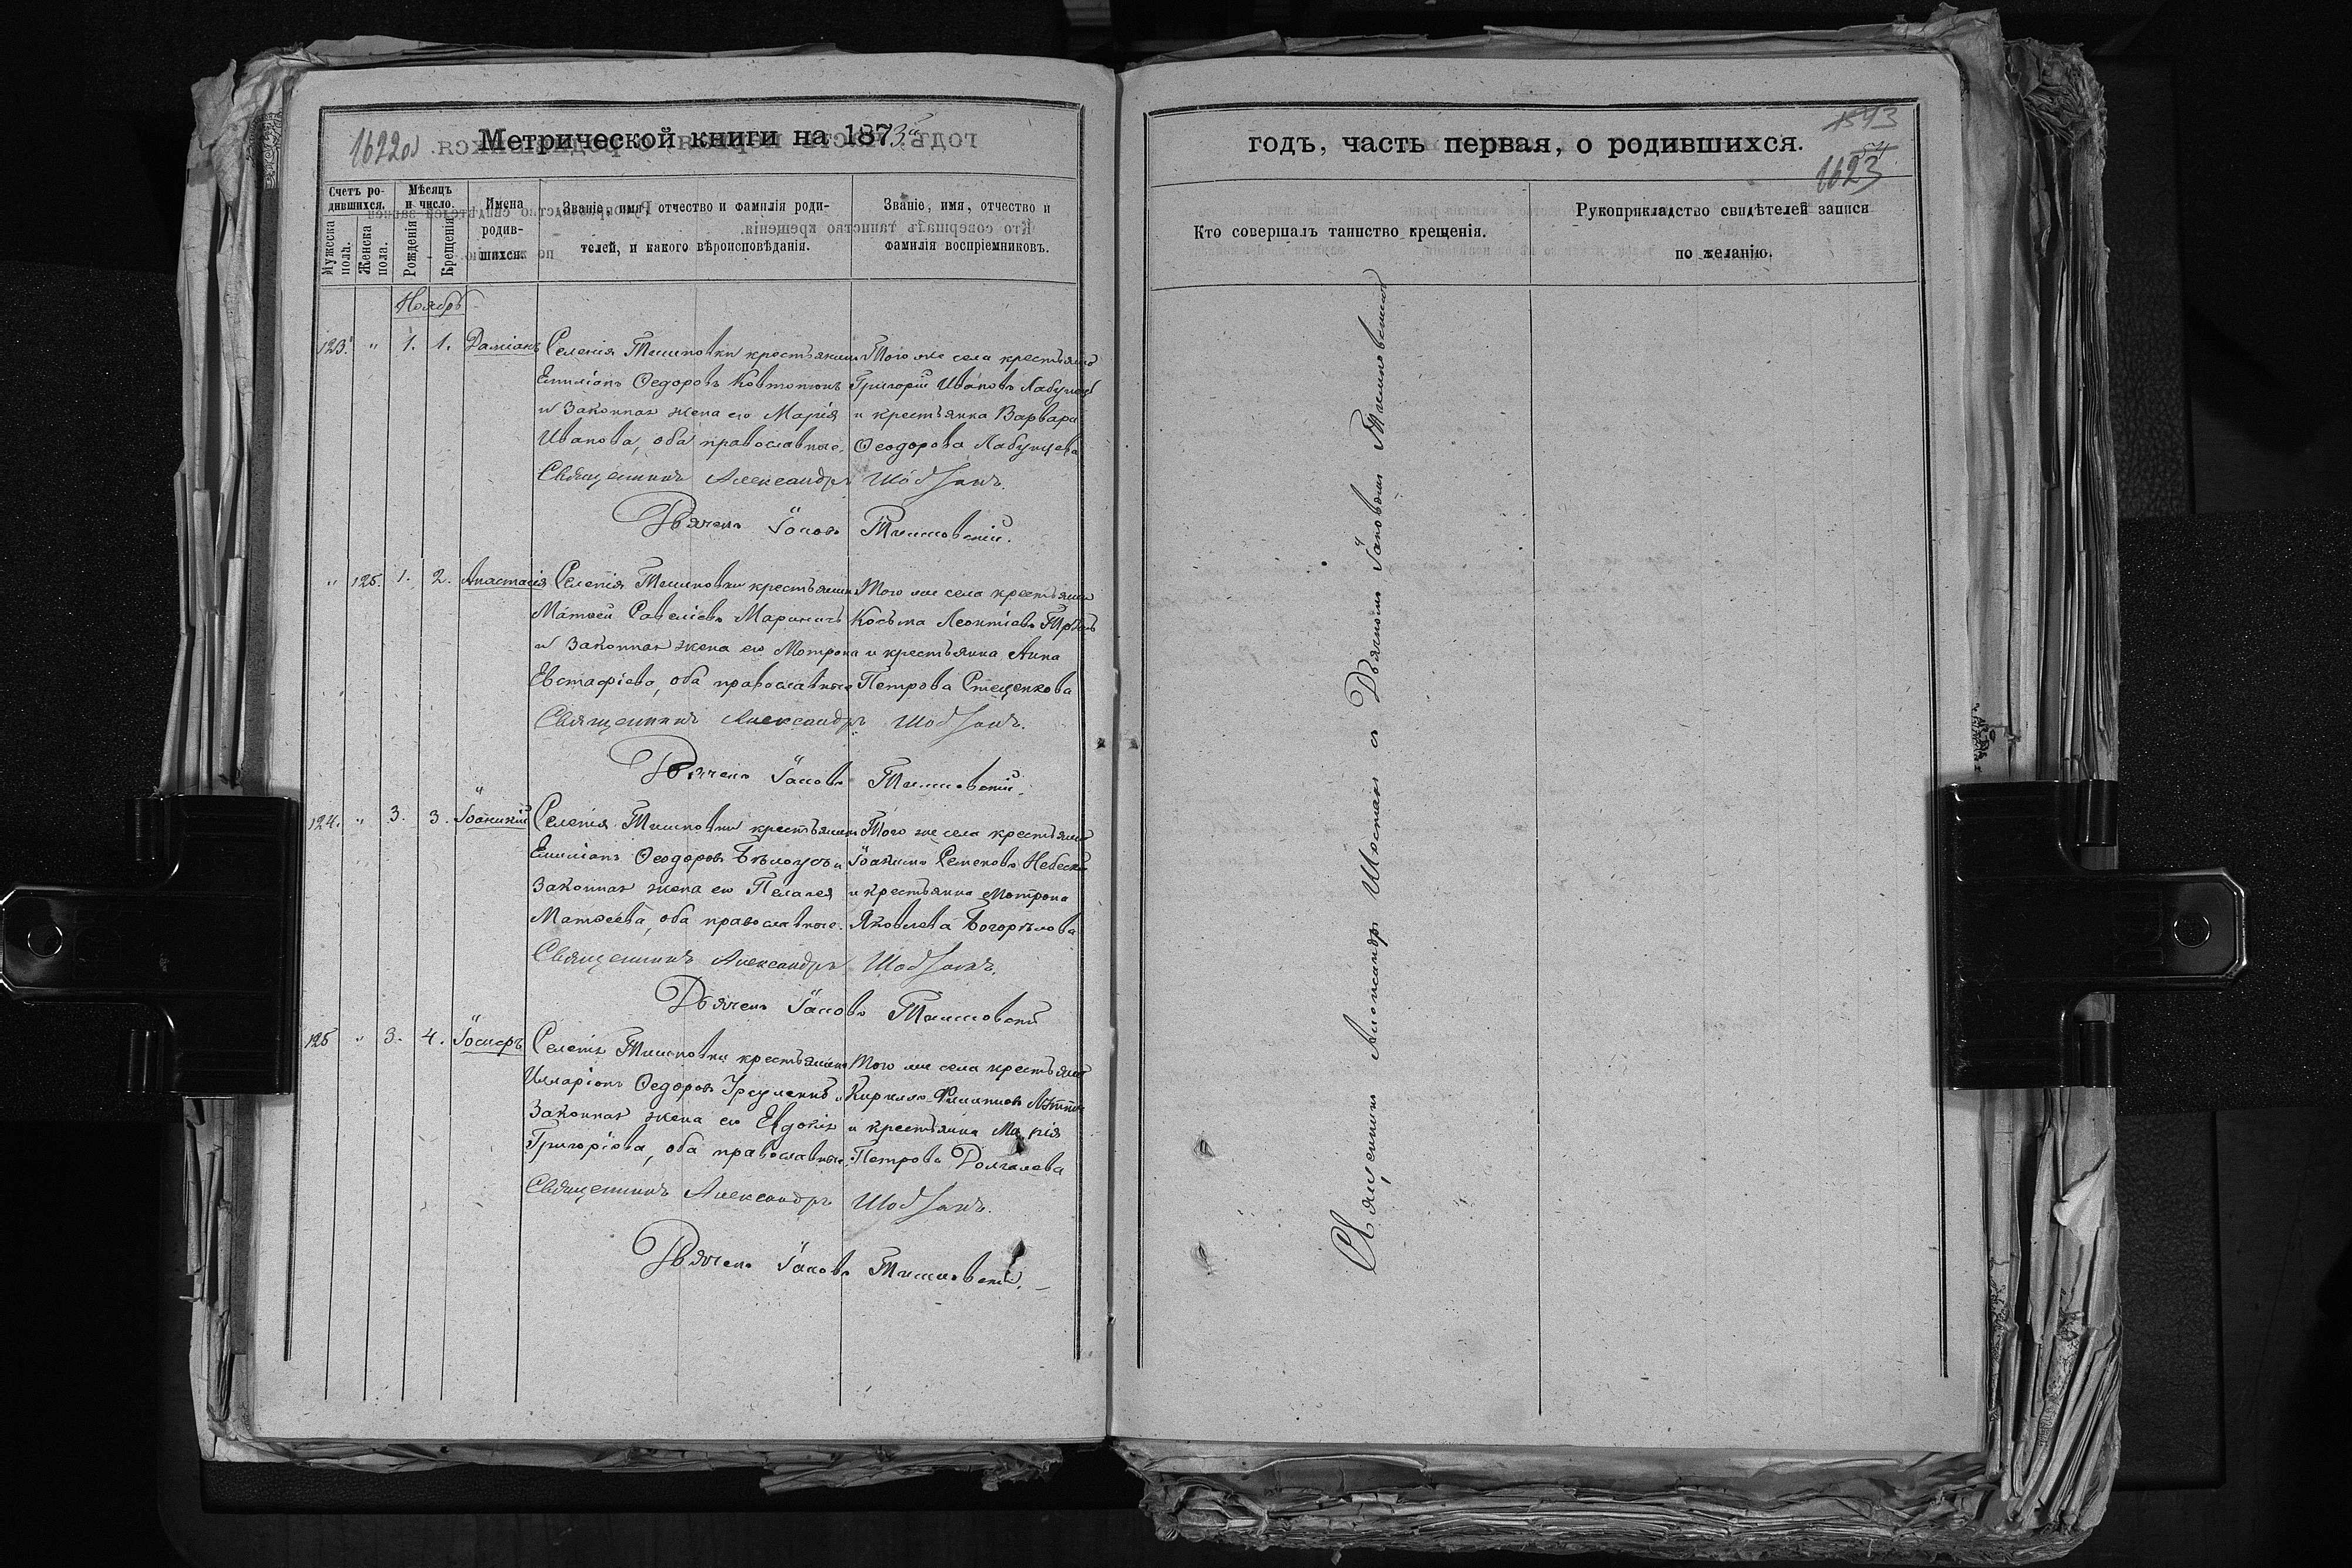 1622об
Метрической книги на 1873й
Счетъ родившихся.
Мужеска пола.
Женска пола.
Мѣсяцъ и число.
Рожденія
Крещенія
Имена родившихся.
Званіе, имя, отчество и фамилія родителей, и какого вѣроисповѣданія.
Званіе, имя, отчество и фамилія воспріемниковъ.
Ноябрь
123. " 1. 1. Даміанъ
Селенія Тишковки крестьянинъ
Емиліанъ Ѳедоровъ
и законная жена его Марія
Иванова, оба православные.
Того же села крестьянинъ
Григорій Ивановъ
и крестьянка Варвара
Ѳеодорова Лабунцева
Священникъ Александръ
Дьячекъ Іаковъ Тишковскій.
" 125. 1. 2. Анастасія
Селенія Тишковки крестьянинъ
Матѳей Савеліевъ Мариничъ
и законная жена его Мотрона
Евстафіева, оба православные
Того же села крестьянинъ
Косьма Леонтіевъ
и крестьянка Анна
Петрова Стеценкова
Священникъ Александръ
Дьячекъ Іаковъ Тишковскій.
124. " 3. 3. Іоаникій
Селенія Тишковки крестьянинъ
Емиліанъ Ѳеодоровъ Бѣлоусъ и
законная жена его Пелагея
Матѳеева, оба православные.
Того же села крестьянинъ
Іоакимъ Семеновъ
и крестьянка Мотрона
Яковлева Богорѣлова
Священникъ Александръ
Дьячекъ Іаковъ Тишковскій
125 " 3. 4. Іосифъ
Селенія Тишковки крестьянинъ
Иларіонъ Ѳедоровъ
законная жена его Евдокія
Григоріева, оба православные.
Того же села крестьянинъ
Кириллъ Филиповъ
и крестьянка Марія
Петрова Долгалева
Священникъ Александръ
Дьячекъ Іаковъ Тишковскій.
годъ, часть первая, о родившихся.
1543
1623
Кто совершалъ таинство крещенія.
Рукоприкладство свидѣтелей записи
по желанію.
Священникъ Александръ Шостакъ съ Дьячкомъ Іаковомъ Тишковскимъ